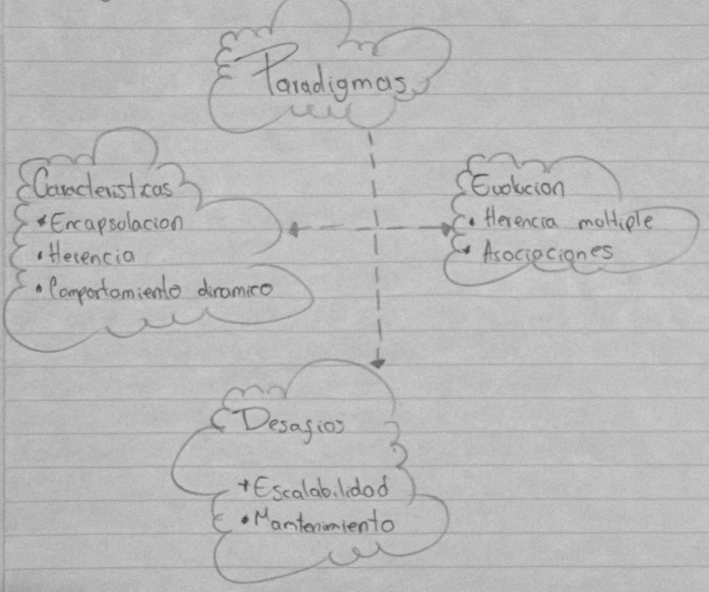 Paradigmas
Caracteristicas
• Encapsolacion
• Herencia
• Comportamiento dinamico
Evolucion
• Herencia moltiple
• Asociaciones
Desafios
+ Escalabilidad
• Mantenimiento